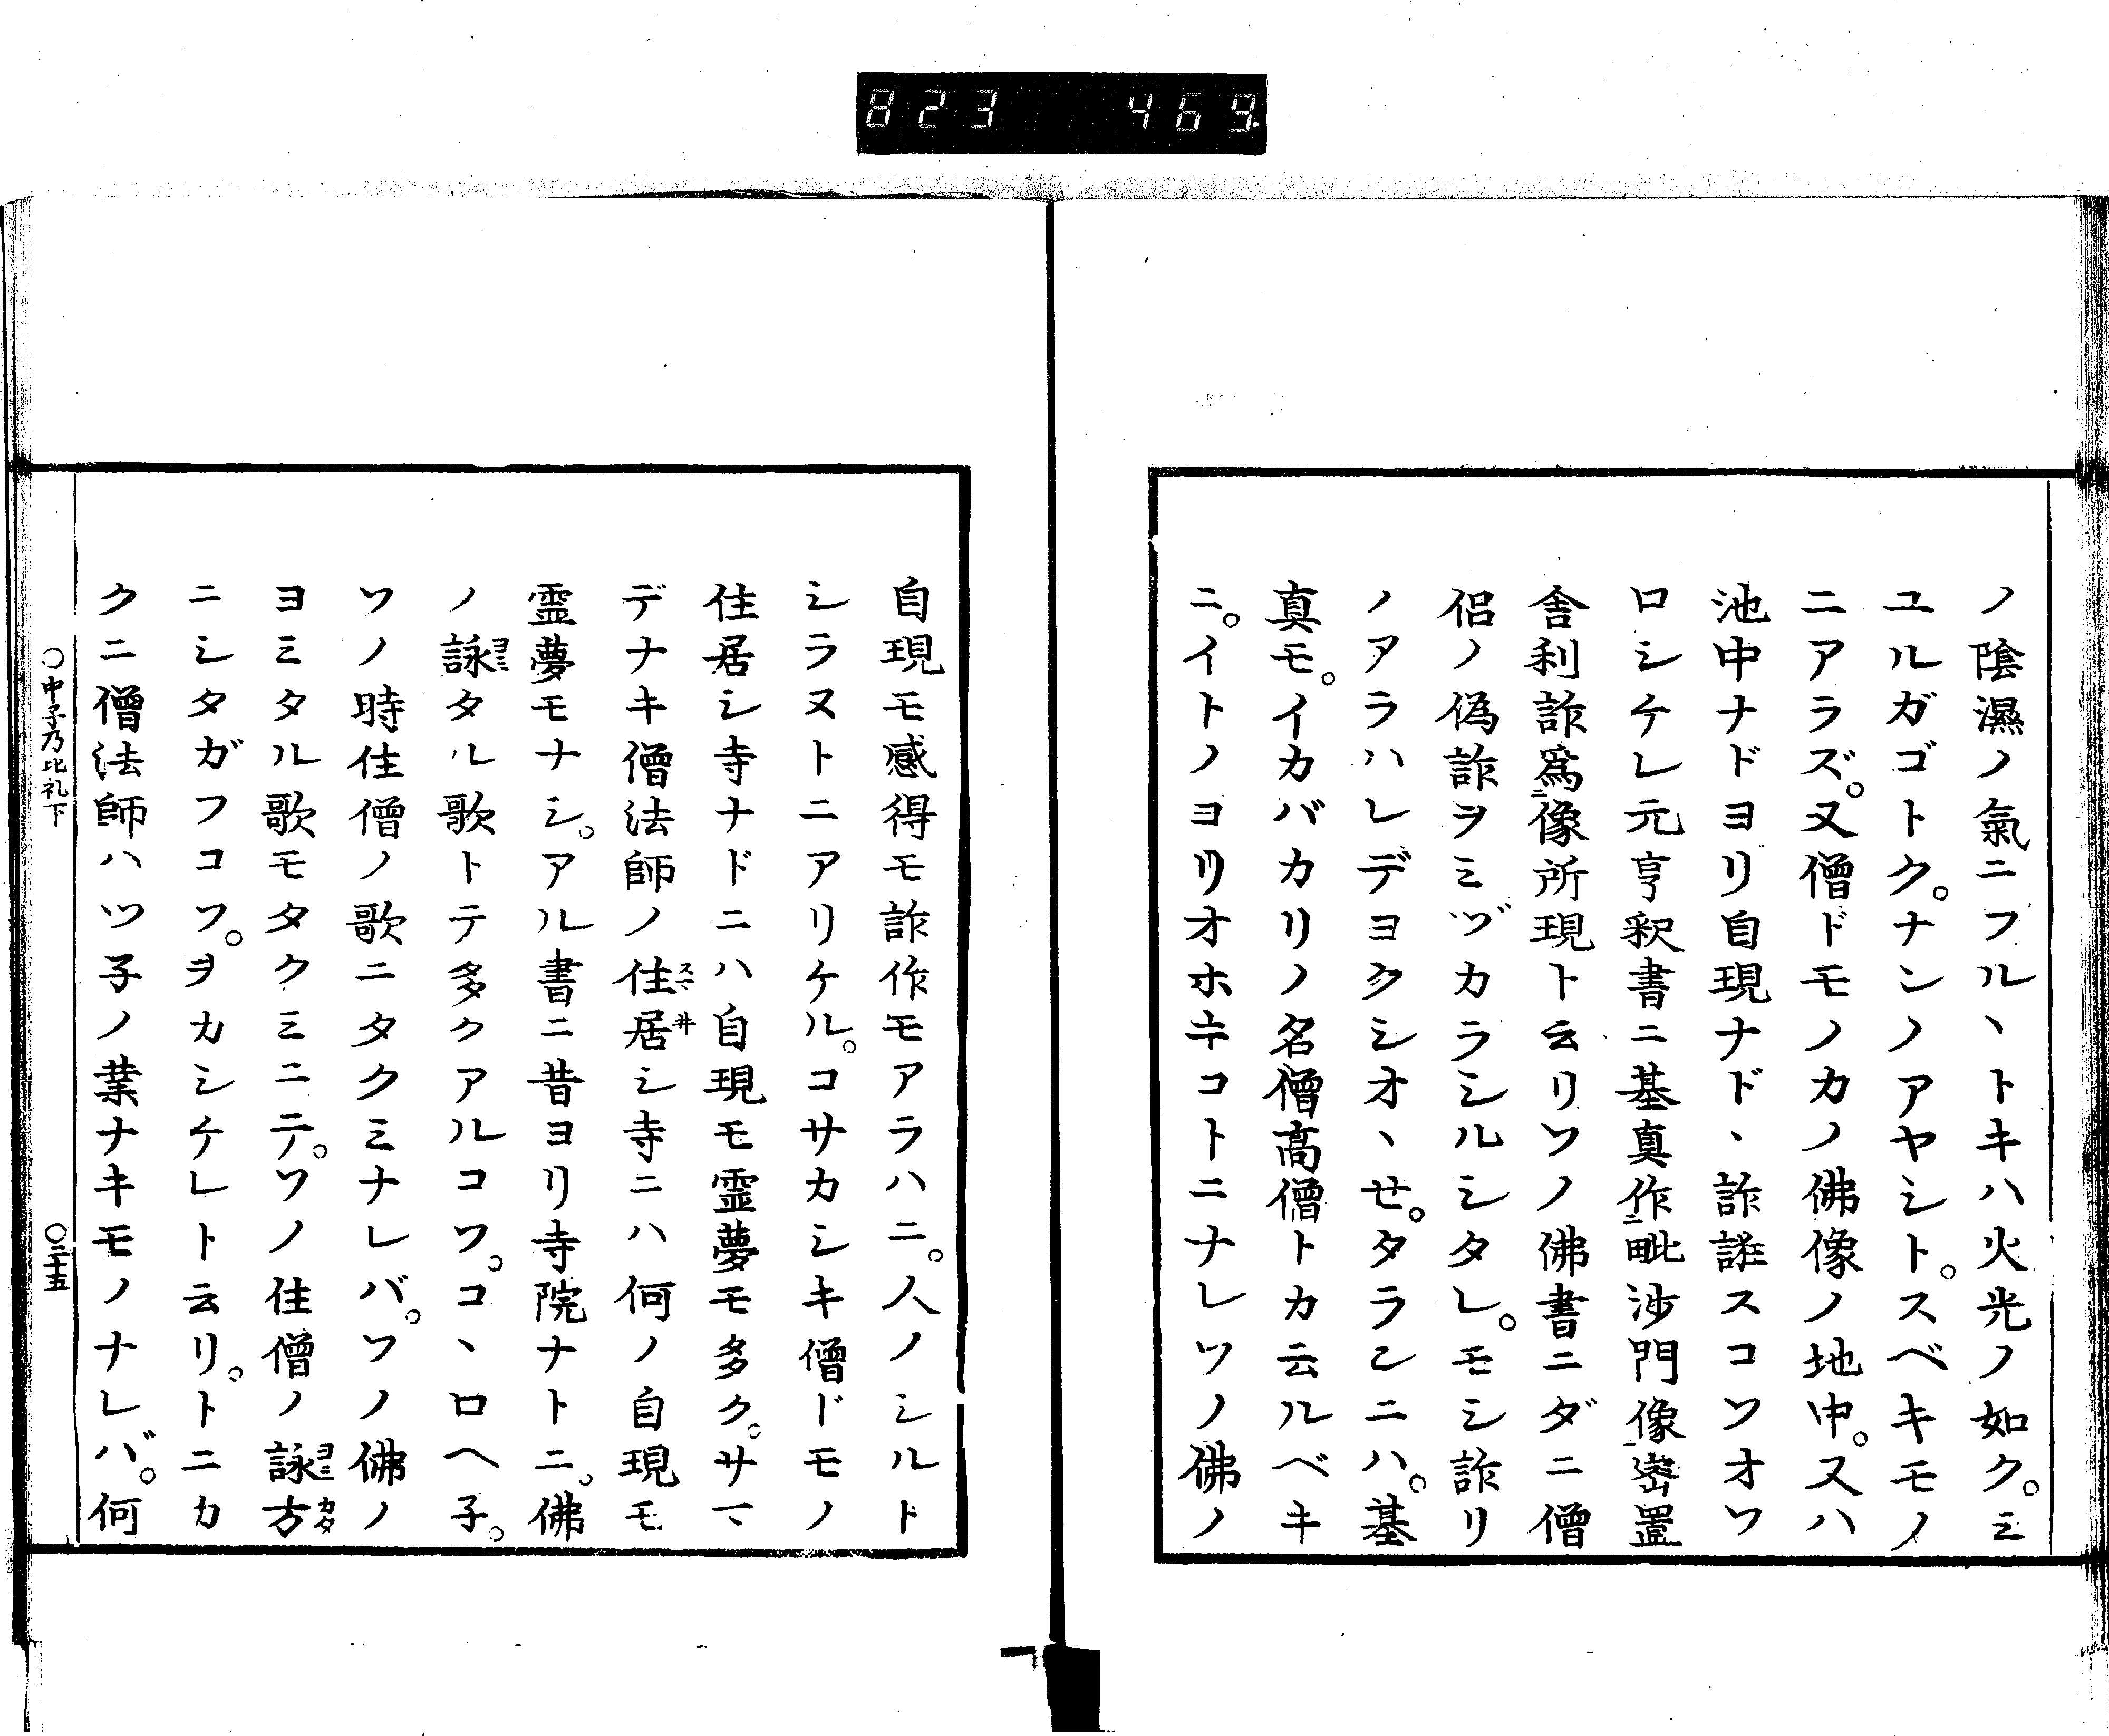 823 469
ノ陰濕ノ氣ニフルヽトキハ火光ノ如ク。ミ
ユルガゴトク。ナンノアヤシト。スベキモノ
ニアラズ。又僧ドモノカノ佛像ノ地中。又ハ
池中ナドヨリ自現ナドヽ詐誑スコソオソ
ロシケレ元亨釈書ニ基真作ニ毗沙門像一嵡置
舎利詐爲ニ像所現ト云リソノ佛書ニダニ僧
侶ノ偽詐ヲミヅカラシルシタレ。モシ詐リ
ノアラハレデヨクシオヽセ。タランニハ。基
真モ。イカバカリノ名僧高僧トカ云ルベキ
ニ。イトノヨリオホキコトニナレソノ佛ノ
自現モ感得モ詐作モアラハニ。人ノシルト
シラヌトニアリケル。コサカシキ僧ドモノ
住居シ寺ナドニハ自現モ霊夢モ多ク。サマヽ
デナキ僧法師ノ住居シ寺ニハ何ノ自現モ
スマ井
霊夢モナシ。アル書ニ昔ヨリ寺院ナトニ。佛
ノ詠タル歌トテ多クアルコソ。コヽロヘ子。
ヨミ
ソノ時住僧ノ歌ニタクミナレバ。ソノ佛ノ
ヨミタル歌モタクミニテ。ソノ住僧ノ詠方
ヨミカタ
ニシタガフコソ。ヲカシケレト云リ。トニカ
クニ僧法師ハツ子ノ業ナキモノナレバ。何
〇中子乃比礼下
〇二十五